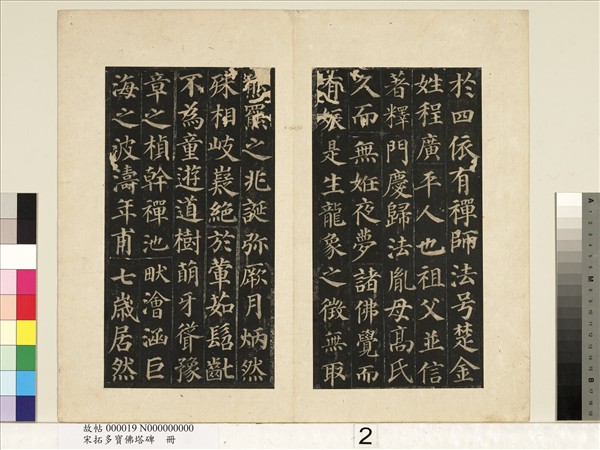 於四依有禪師法号楚金
姓程廣平人也祖父並信
著釋門慶歸法胤母髙氏
久而無姙夜夢諸佛覺而
有娠是生龍象之徵無取
熊羆之兆誕弥厥月炳然
殊相岐嶷絕於葷茹髫齓
不為童遊道樹萌牙聳豫
章之楨幹禪池畎澮涵巨
海之波濤年甫七歲居然
故帖 000019 N000000000
宋拓多寶佛塔碑 冊
2
A
M
B